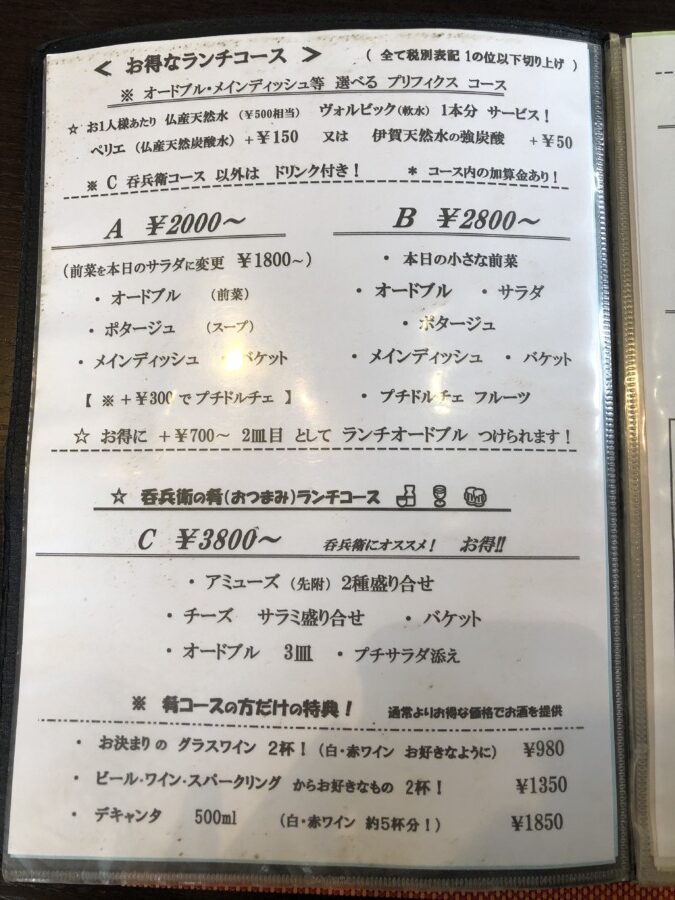 < お得なランチコース > ( 全て税別表記 1の位以下切り上げ )
※ オードブル・メインディッシュ等 選べる プリフィクス コース
☆ お1人様あたり 仏産天然水 (¥500相当) ヴォルビック(軟水) 1本分 サービス!
ペリエ (仏産天然炭酸水) +¥150 又は 伊賀天然水の強炭酸 +¥50
※ C 呑兵衛コース 以外は ドリンク付き! * コース内の加算金あり!
A ¥2000～
(前菜を本日のサラダに変更 ¥1800～)
・ オードブル (前菜)
・ ポタージュ (スープ)
・ メインディッシュ ・ バケット
【 ※ +¥300 で プチドルチェ 】
B ¥2800～
・ 本日の小さな前菜
・ オードブル ・ サラダ
・ ポタージュ
・ メインディッシュ ・ バケット
・ プチドルチェ フルーツ
☆ お得に +¥700～ 2皿目 として ランチオードブル つけられます!
☆ 呑兵衛の肴(おつまみ)ランチコース
C ¥3800～ 呑兵衛にオススメ! お得!!
・ アミューズ (先附) 2種盛り合せ
・ チーズ サラミ盛り合せ ・ バケット
・ オードブル 3皿 ・ プチサラダ添え
※ 肴コースの方だけの特典! 通常よりお得な価格でお酒を提供
・ お決まりの グラスワイン 2杯! (白・赤ワイン お好きなように) ¥980
・ ビール・ワイン・スパークリング からお好きなもの 2杯! ¥1350
・ デキャンタ 500ml (白・赤ワイン 約5杯分!) ¥1850